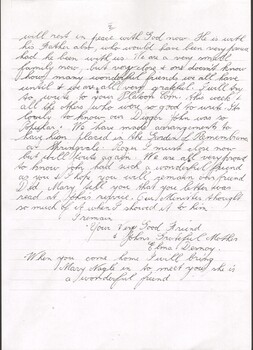 2
will rest in peace with God now. He is with
his Father also, who would have been very proud
had he been with us. We are a very small
family now. But very close & one doesn't know
how many wonderful friends we all have
until & we are all very grateful. I will try
to write to your Platoon Com. this week &
all the others who were so good to write. Its
lovely to know our Digger John was so
Popular. We have made arrangements to
have him placed in the Garden of Remembrance
at Springvale. Ron I must close now
but shall write again. We are all very proud
to know John had such a wonderful friend
as you & I hope you will remain our friend
Did Mary tell you that you letter was
read at Johns service. Our Minister thought
so much of it when I showed it to him
I remain
Your Very Good Friend
Johns Grateful Mother
Elma
When you come home I will bring
Mary Nagle in to meet you she is
a wonderful friend